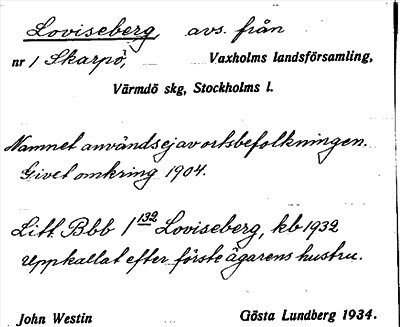 Loviseberg, avs. från
nr 1 Skarpö, Vaxholms landsförsamling,
Värmdö skg, Stockholms l.
Namnet användsej av ortsbefolkningen.
Givet omkring 1904.
Litt. Bbb 1 132 Loviseberg, kb 1932
Uppkallat efter förste ägarens hustru.
John Westin Gösta Lundberg 1934.